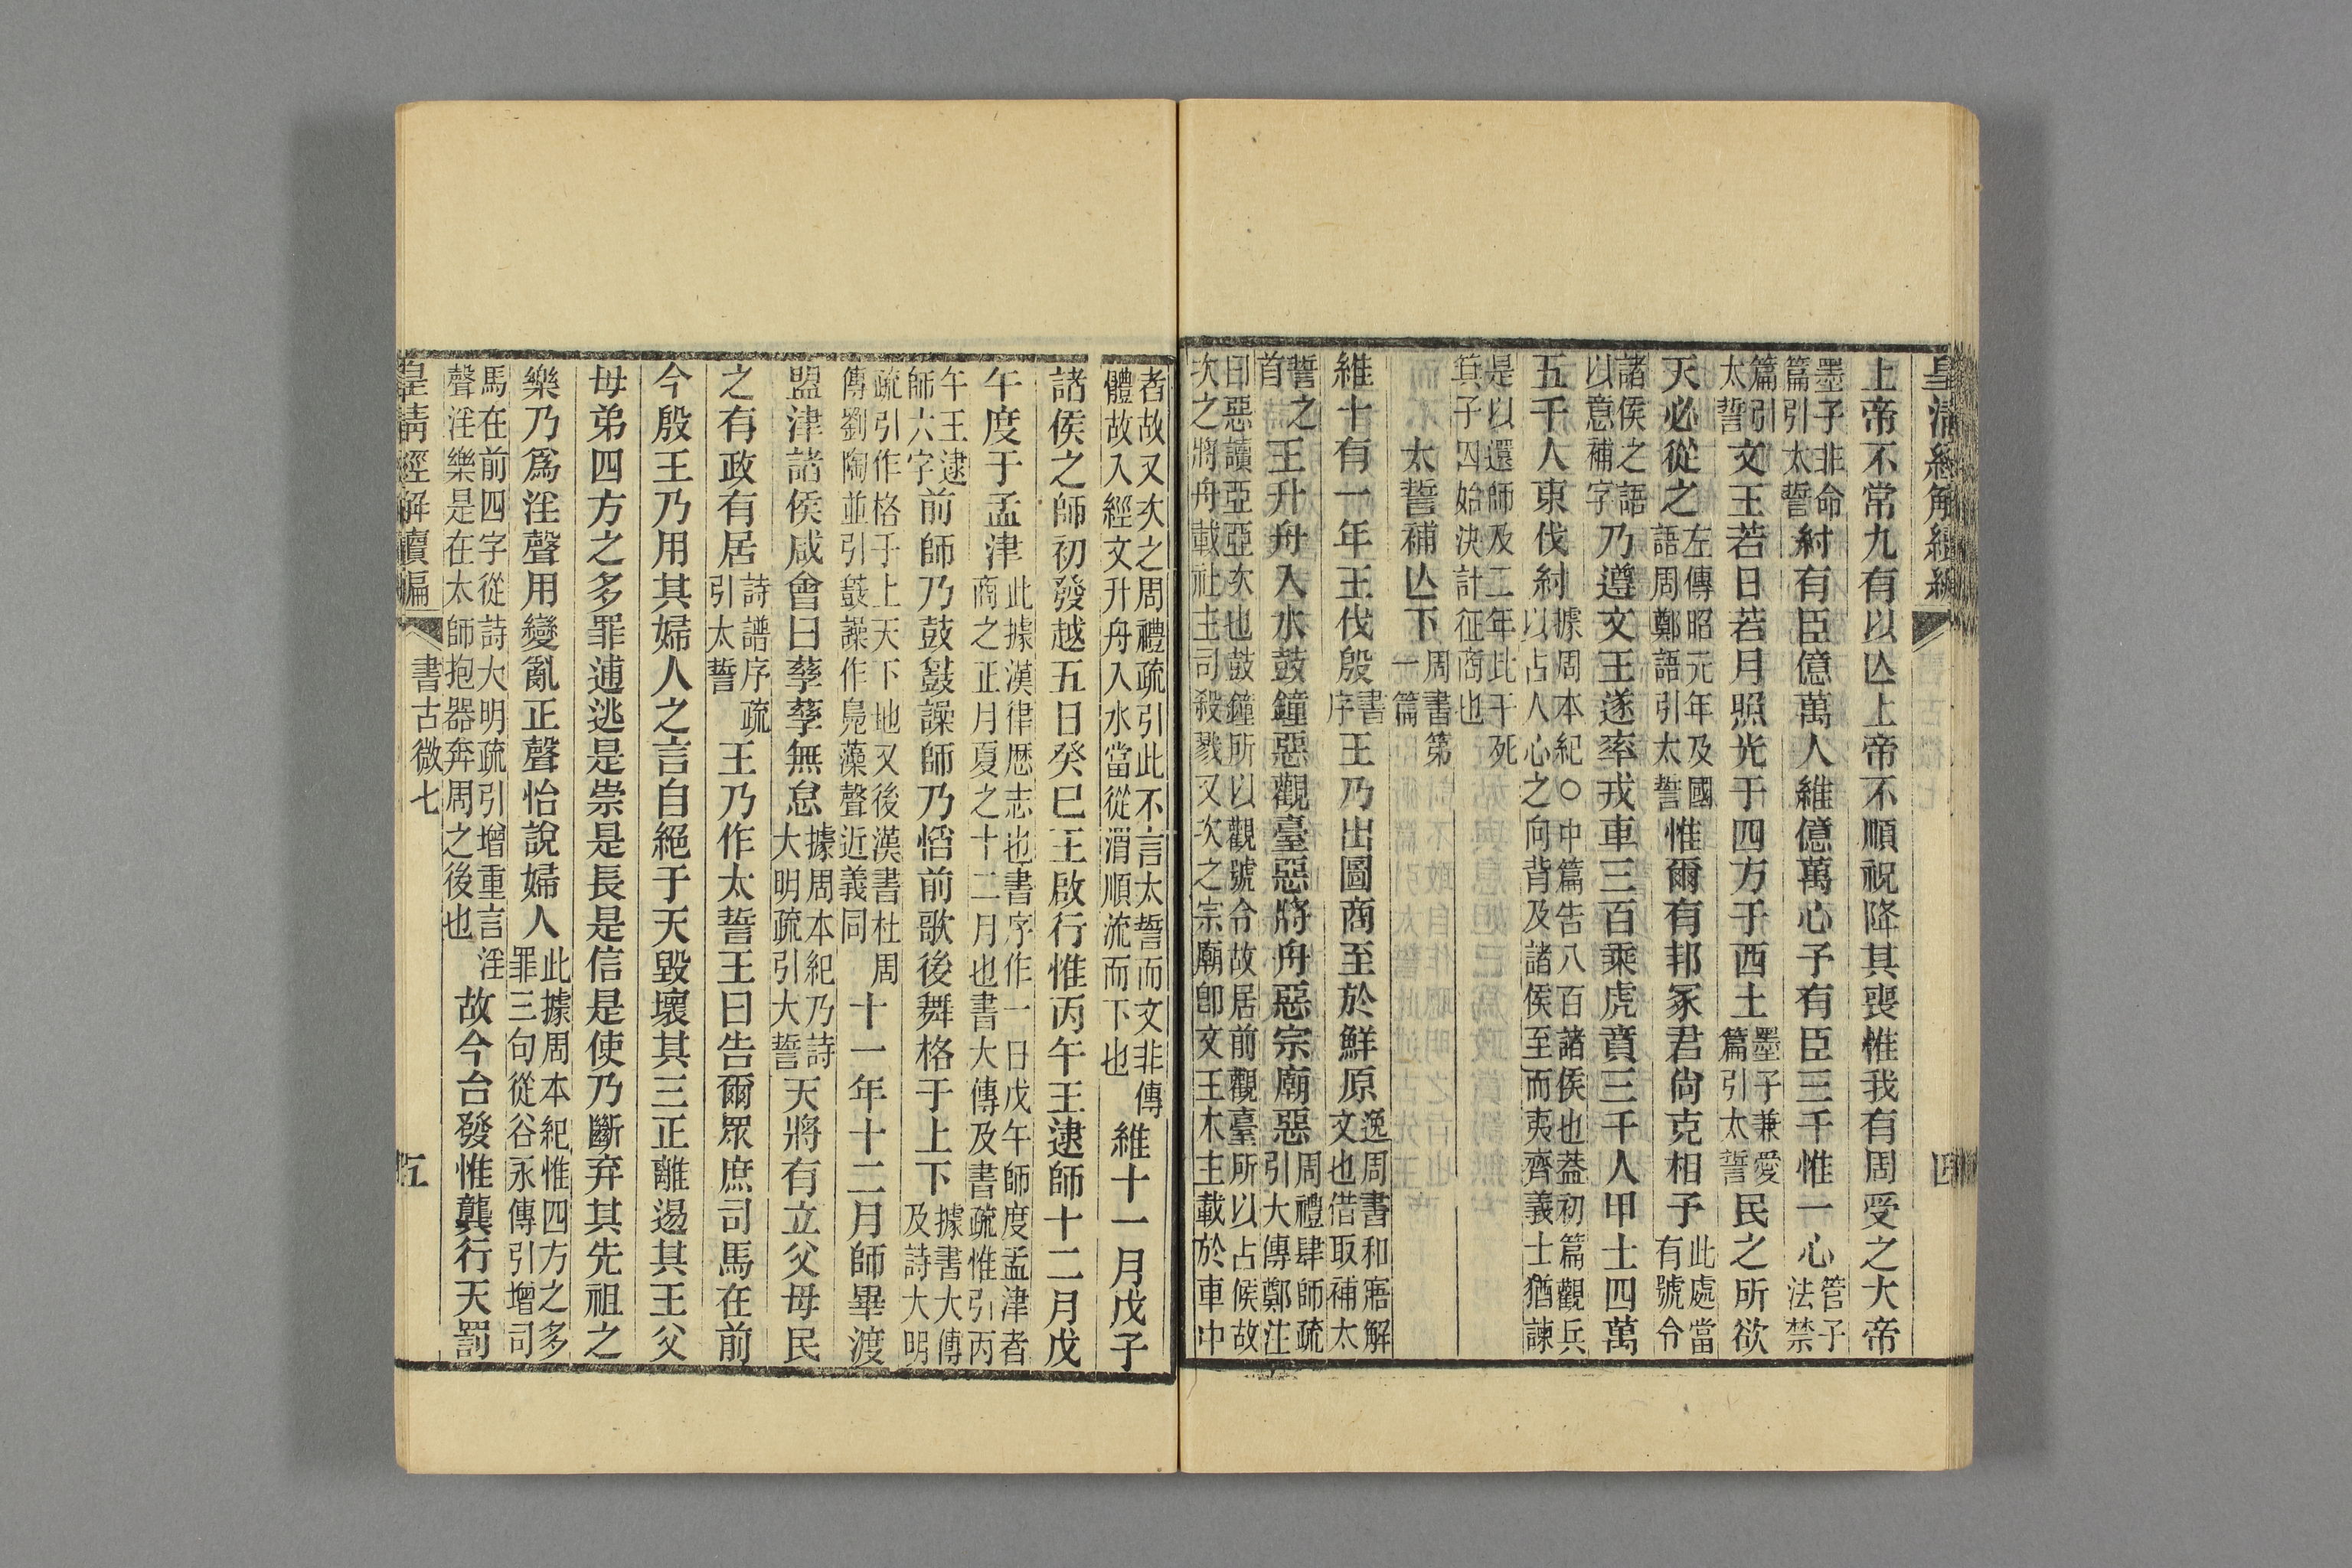 皇清經解續編
四
上帝不常九有以亾上帝不順祝降其喪惟我有周受之大帝
墨子非命
篇引太誓
紂有臣億萬人維億萬心予有臣三千惟一心
管子
法禁
篇引
太誓
文王若日若月照光于四方于西土
墨子兼愛
篇引太誓
民之所欲
天必從之
左傳昭元年及國
語周鄭語引太誓
惟爾有邦冢君尙克相予
此處當
有號令
諸侯之語
以意補字
乃遵文王遂率戎車三百乘虎賁三千人甲士四萬
五千人東伐紂
據周本紀○中篇告八百諸侯也葢初篇觀兵
以占人心之向背及諸侯至而夷齊義士猶諫
是以還師及二年比干死
箕子囚始決計征商也
太誓補亾下
周書第
一篇
維十有一年王伐殷
書
序
王乃出圖商至於鮮原
逸周書和寤解
文也借取補太
誓之
首
王升舟入水鼓鐘惡觀臺惡將舟惡宗廟惡
周禮肆師疏
引大傳鄭注
曰惡讀亞亞次也鼓鐘所以觀號令故居前觀臺所以占候故
次之將舟載社主司殺戮又次之宗廟卽文王木主載於車中
者故又次之周禮疏引此不言太誓而文非傳
體故入經文升舟入水當從渭順流而下也
維十一月戊子
諸侯之師初發越五日癸巳王啟行惟丙午王逮師十二月戊
午度于孟津
此據漢律厯志也書序作一日戊午師度孟津者
商之正月夏之十二月也書大傳及書疏惟引丙
午王逮
師六字
前師乃鼓鼓譟師乃慆前歌後舞格于上下
據書大傳
及詩大明
疏引作格于上天下地又後漢書杜周
傳劉陶並引鼓譟作鳧藻聲近義同
十一年十二月師畢渡
盟津諸侯咸會曰孳孳無怠
據周本紀乃詩
大明疏引大誓
天將有立父母民
之有政有居
詩譜序疏
引太誓
王乃作太誓王曰告爾眾庶司馬在前
今殷王乃用其婦人之言自絕于天毀壞其三正離逷其王父
母弟四方之多罪逋逃是崇是長是信是使乃斷弃其先祖之
樂乃爲淫聲用變亂正聲怡說婦人
此據周本紀惟四方之多
罪三句從谷永傳引增司
馬在前四字從詩大明疏引增重言淫
聲淫樂是在太師抱器奔周之後也
故今台發惟龔行天罰
皇清經解續編
書古微七
五